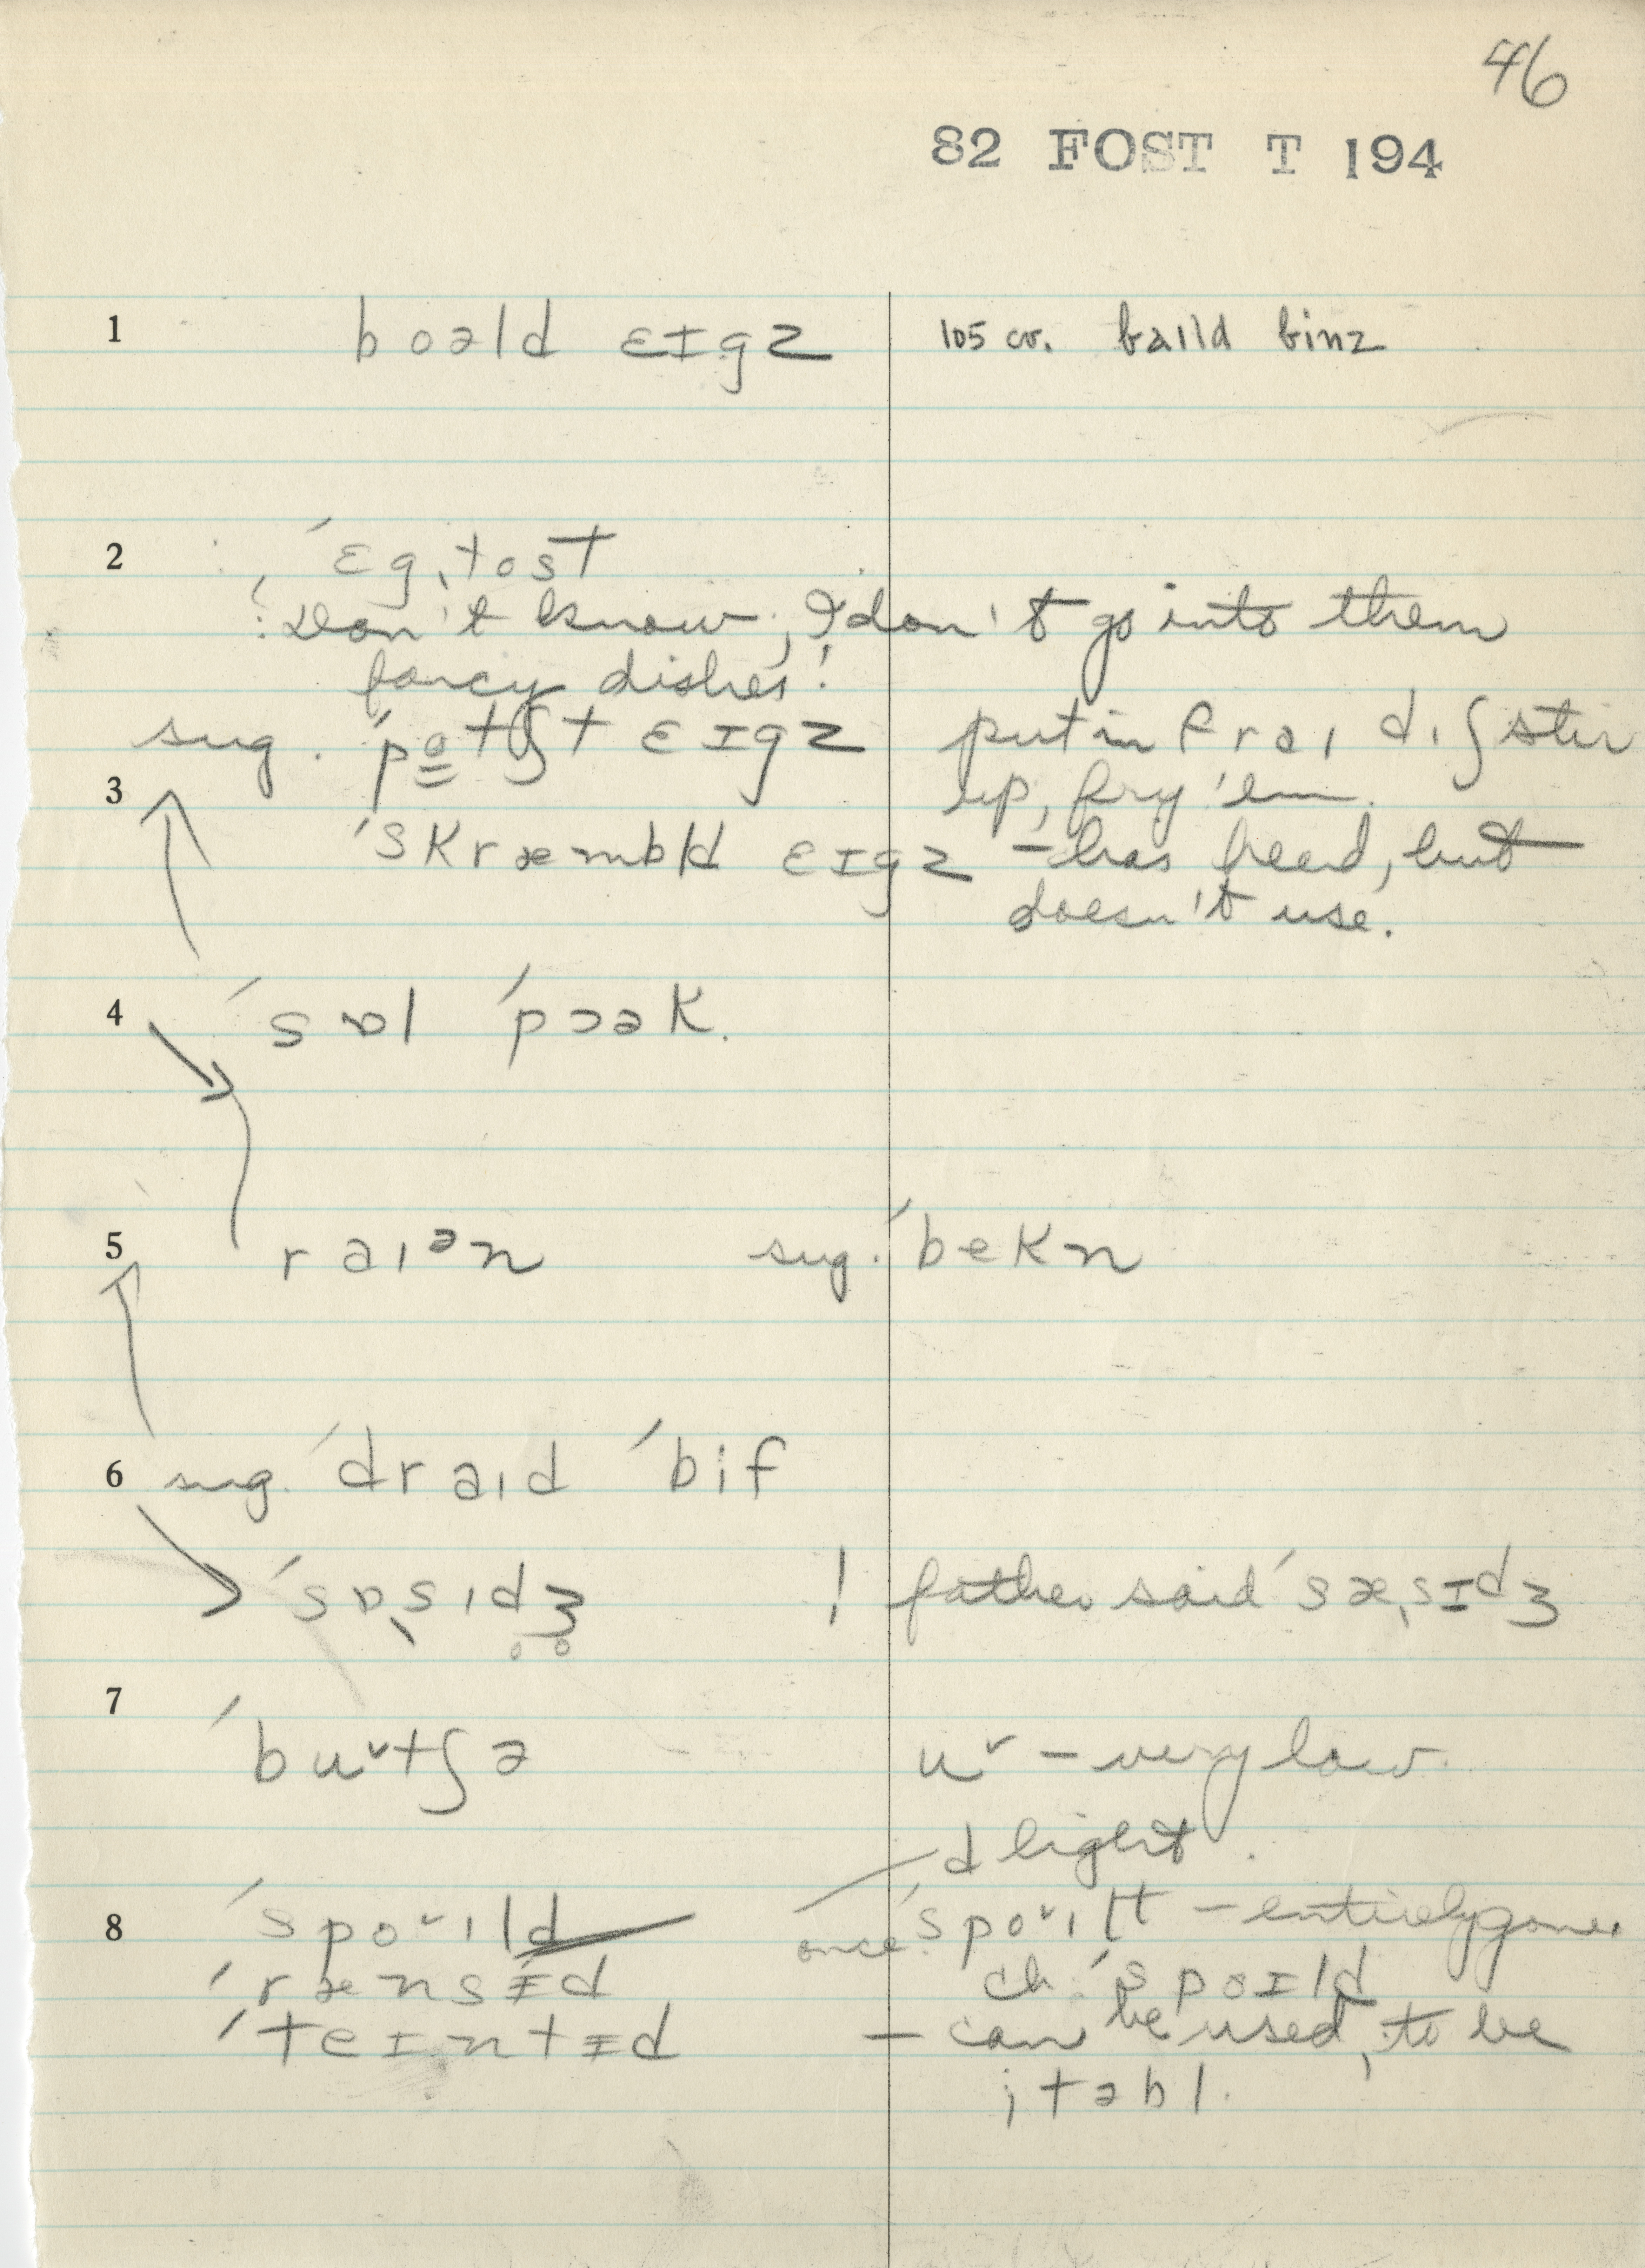 46
82 FOST T 194
1 boəld ɛɪgz 105 cv. baɪld binz
2 ´ɛgˌtost
! Don't know, I don't go into them
fancy dishes!
sug. ´potʃt ɛɪgz put in fraɪ dɪʃ stir
3 up, fry 'em.
´skræmbld ɛɪgz – has heard, but
doesn't use.
4 ´sɒl ´pɔək.
5 raɪᵊn sug. ´bekn
6 sug. ´draɪd ´bif
´sɒˌsɪdʒ̥ ! father said ´sæˌsɪdʒ
7
´buˇtʃə uˇ – very low.
d light.
8 ´spoˇɪld once ´spoˇɪlt – entirely gone.
´rænsɨd ch. ´spoɪld
´teɪntɨd – can be used, to be
itabl.